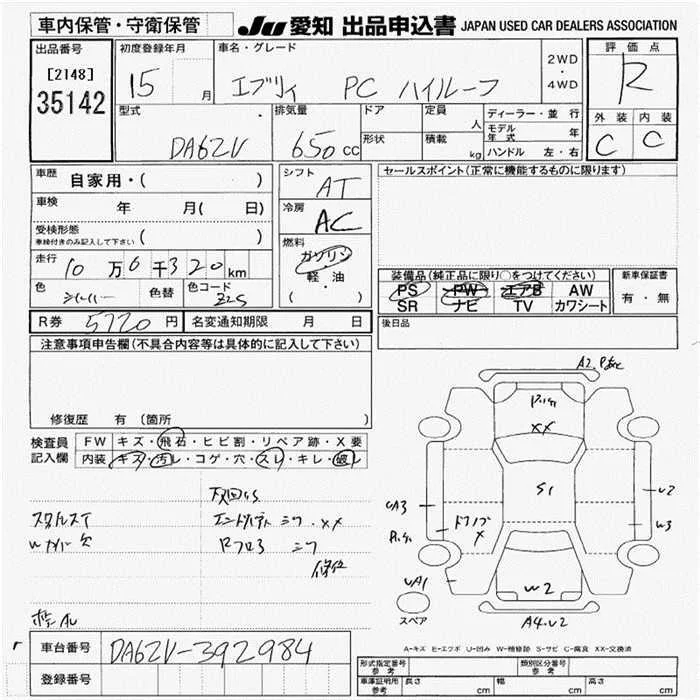 車内保管・守衛保管
JU 愛知 出品申込書 JAPAN USED CAR DEALERS ASSOCIATION
出品番号
[2148]
35142
初度登録年月
15 月
車名・グレード
エブリィ PC ハイルーフ
2WD
・
4WD
評価点
R
外装 内装
C C
型式
DA62V
排気量
650 cc
ドア
形状
定員
人
積載
kg
ディーラー・並行
モデル年式 年
ハンドル 左・右
車歴 自家用・( )
車検 年 月( 日)
受検形態
車検付きのみ記入して下さい ( )
走行 10万6千320km
色 シルバー 色替 色コード Z2S
シフト
AT
冷房
AC
燃料
ガソリン
軽・油
( )
セールスポイント(正常に機能するものに限ります)
装備品(純正品に限り○をつけてください)
PS PW エアB AW
SR ナビ TV カワシート
新車保証書
有・無
R券 5770円 名変通知期限 月 日
後日品
注意事項申告欄(不具合内容等は具体的に記入して下さい)
修復歴 有(箇所
検査員記入欄
FW キズ・飛石・ヒビ割・リペア跡・X要
内装 キズ・汚レ・コゲ・穴・スレ・キレ・破レ
XX
S1
U2
W3
ドアノブ
X
UA3
UA1
W2
A4.U2
スペア
A-キズ E-エクボ U-凹み W-補修跡 S-サビ C-腐食 XX-交換済
車台番号 DA62V-392984
登録番号
形式指定番号 参考
類別区分番号 参考
車庫証明用 参考 長さ cm 幅 cm 高さ cm